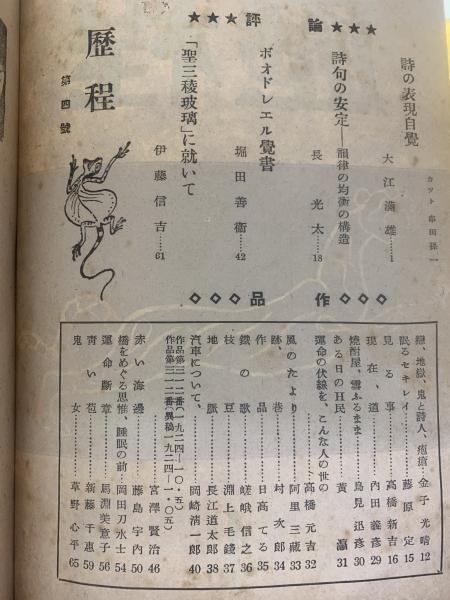 カツト 串田孫一
詩の表現自覺 大江滿雄……1
★★★論 評★★★
詩句の安定――韻律の均衡の構造 長光太……18
ボオドレエル覺書 堀田善衞……42
「聖三稜玻璃」に就いて 伊藤信吉……61
歷程
第四號
◇◇◇作 品◇◇◇
鐘、地獄、鬼と詩人、疱瘡 金子光晴 12
眠るセキレイ 藤原定 15
見る事 高橋新吉 16
現在、道 內田義彥 29
燒酎屋、雪ふるまま 鳥見迅彥 30
ある日のH民 黃瀛 31
運命の伏線を、こんな人の世の 高橋元吉 32
風のたより 阿里三藏 33
跡、巷 村次郎 34
作品 日高てる 35
鐵の歌 嵯峨信之 36
枝豆 淵上毛錢 37
地脈 長江道太郎 38
汽車について、 岡崎淸一郞 40
作品第三一二番(一九二四―一〇・五)
作品第三一二番(異稿一九二四―一〇・五) 宮澤賢治 46
赤い海邊 藤島宇內 50
橋をめぐる思惟、睡眠の前 岡田刀水士 54
運命斷章 馬淵美意子 56
靑い苞 新藤千惠 59
鬼女 草野心平 65